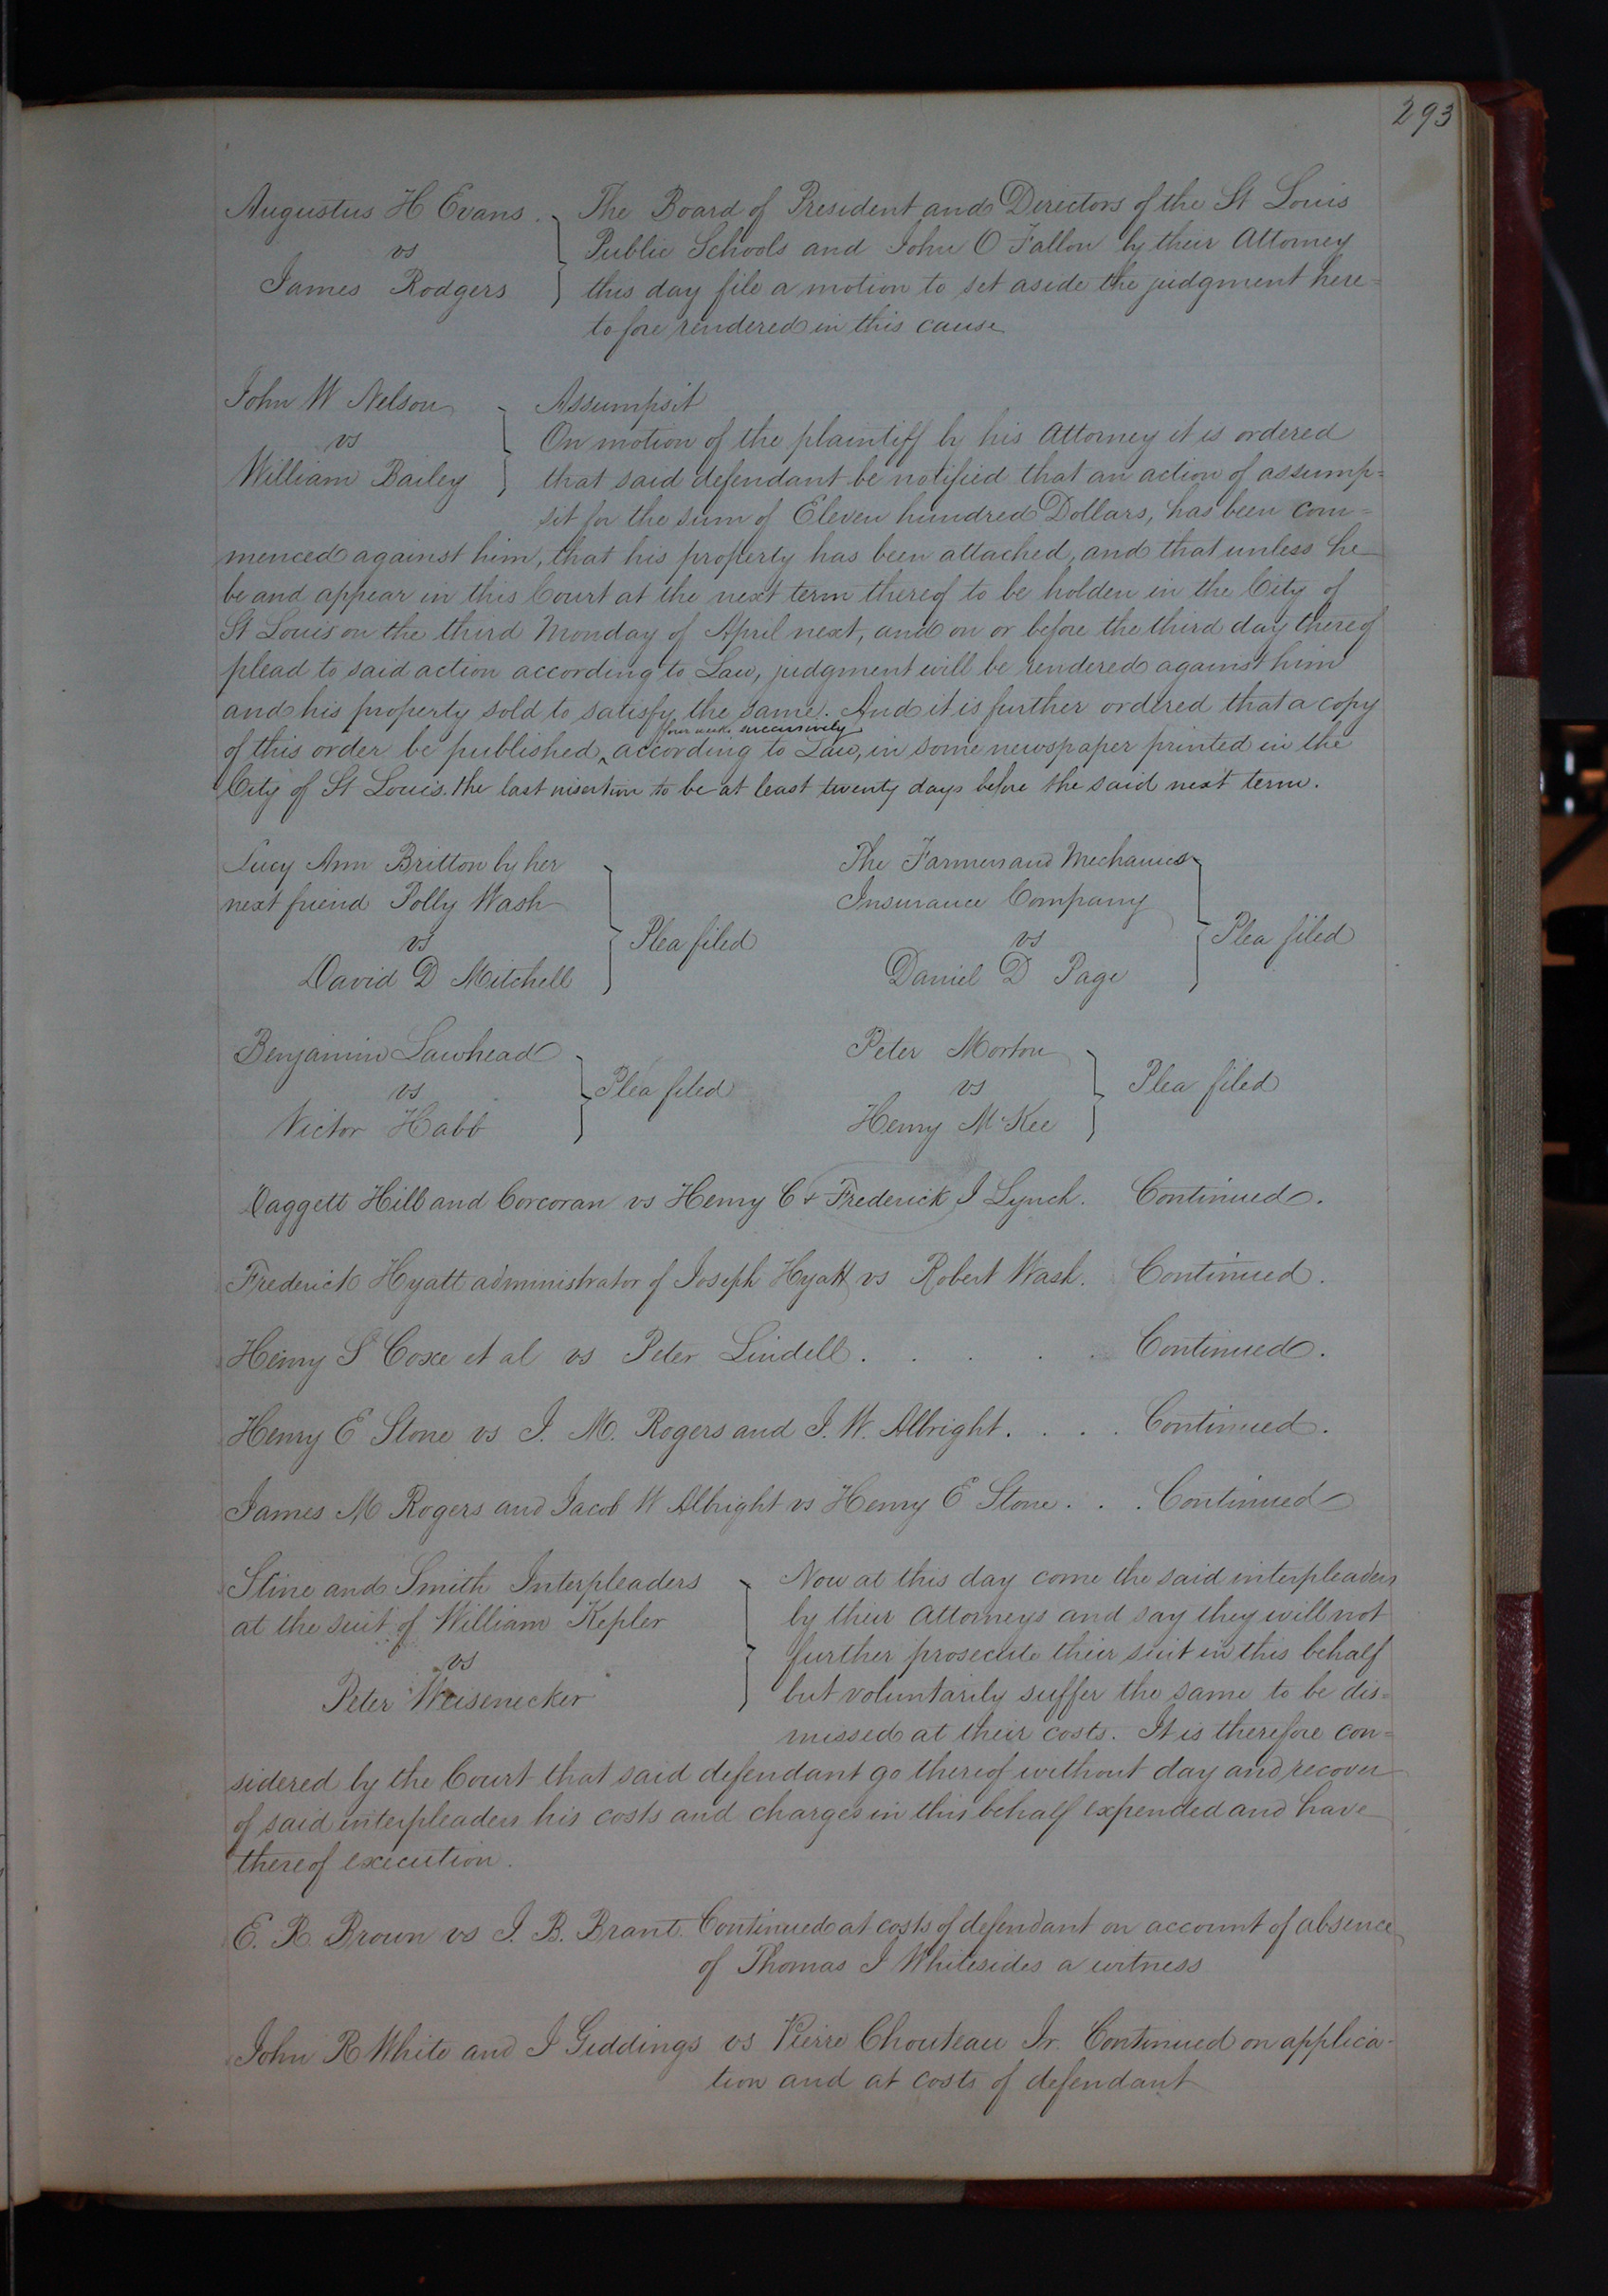 293
Augustus H Evans. The Board of President and Directors of the St Louis
vs Public Schools and John O Fallon by their Attorney
James Rodgers this day file a motion to set aside the judgment here=
tofore rendered in this cause
John W Nelson Assumpsit
vs On motion of the plaintiff by his Attorney it is ordered
William Bailey that said defendant be notified that an action of assump=
sit for the sum of Eleven hundred Dollars, has been com=
menced against him, that his property has been attached, and that unless he
be and appear in this Court at the next term thereof to be holden in the City of
St Louis on the third Monday of April next, and on or before the third day thereof
plead to said action according to Law, judgment will be rendered against him
and his property sold to satisfy the same. And it is further ordered that a copy
four weeks successively
of this order be published ^ according to Law, in some newspaper printed in the
City of St Louis. the last insertion to be at least twenty days before the said next term.
Lucy Ann Britton by her
next friend Polly Wash
vs Plea filed
David D Mitchell
The Farmers and Mechanics
Insurance Company
vs Plea filed
Daniel D Page
Benjamin Lawhead
vs Plea filed
Victor Habb
Peter Morton
vs Plea filed
Henry McKee
Daggett Hill and Corcoran vs Henry C & Frederick J Lynch. Continued.
Frederick Hyatt administrator of Joseph Hyatt vs Robert Wash. Continued.
Henry S Coxe et al vs Peter Lindell. . . . . Continued.
Henry E Stone vs J. M. Rogers and J. W. Albright. . . . Continued.
James M Rogers and Jacob W Albright vs Henry E Stone. . . Continued
Stine and Smith Interpleaders Now at this day come the said interpleaders
at the suit of William Kepler by their Attorneys and say they will not
vs further prosecute their suit in this behalf
Peter Weisenecker but voluntarily suffer the same to be dis=
missed at their costs. It is therefore con=
sidered by the Court that said defendant go thereof without day and recover
of said interpleaders his costs and charges in this behalf expended and have
thereof execution.
E. R. Brown vs J. B. Brant. Continued at costs of defendant on account of absence
of Thomas J Whitesides a witness
John R White and J Giddings vs Pierre Chouteau Jr. Continued on applica-
tion and at costs of defendant